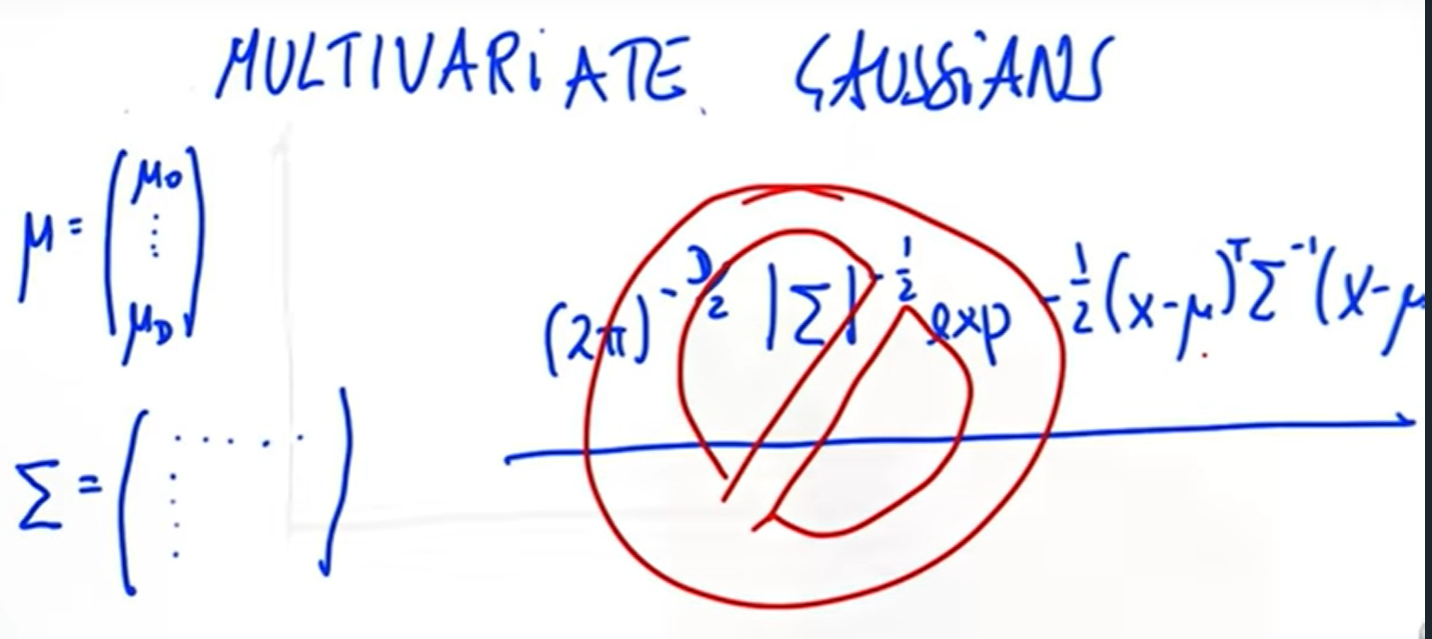 MULTIVARiATE GAUSSiANS
μ = (μ0 ⋮ μD)
(2π)^-D/2 |Σ|^-1/2 exp -1/2 (x-μ)^T Σ^-1 (x-μ
Σ = (..... ....)